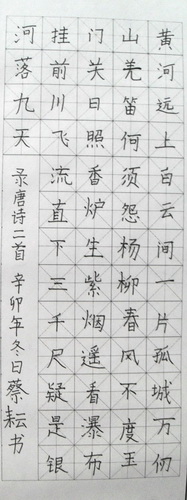 黄河远上白云间一片孤城万仞
山羌笛何须怨杨柳春风不度玉
门关日照香炉生紫烟遥看瀑布
挂前川飞流直下三千尺疑是银
河落九天 录唐诗二首 辛卯年冬日蔡耘书